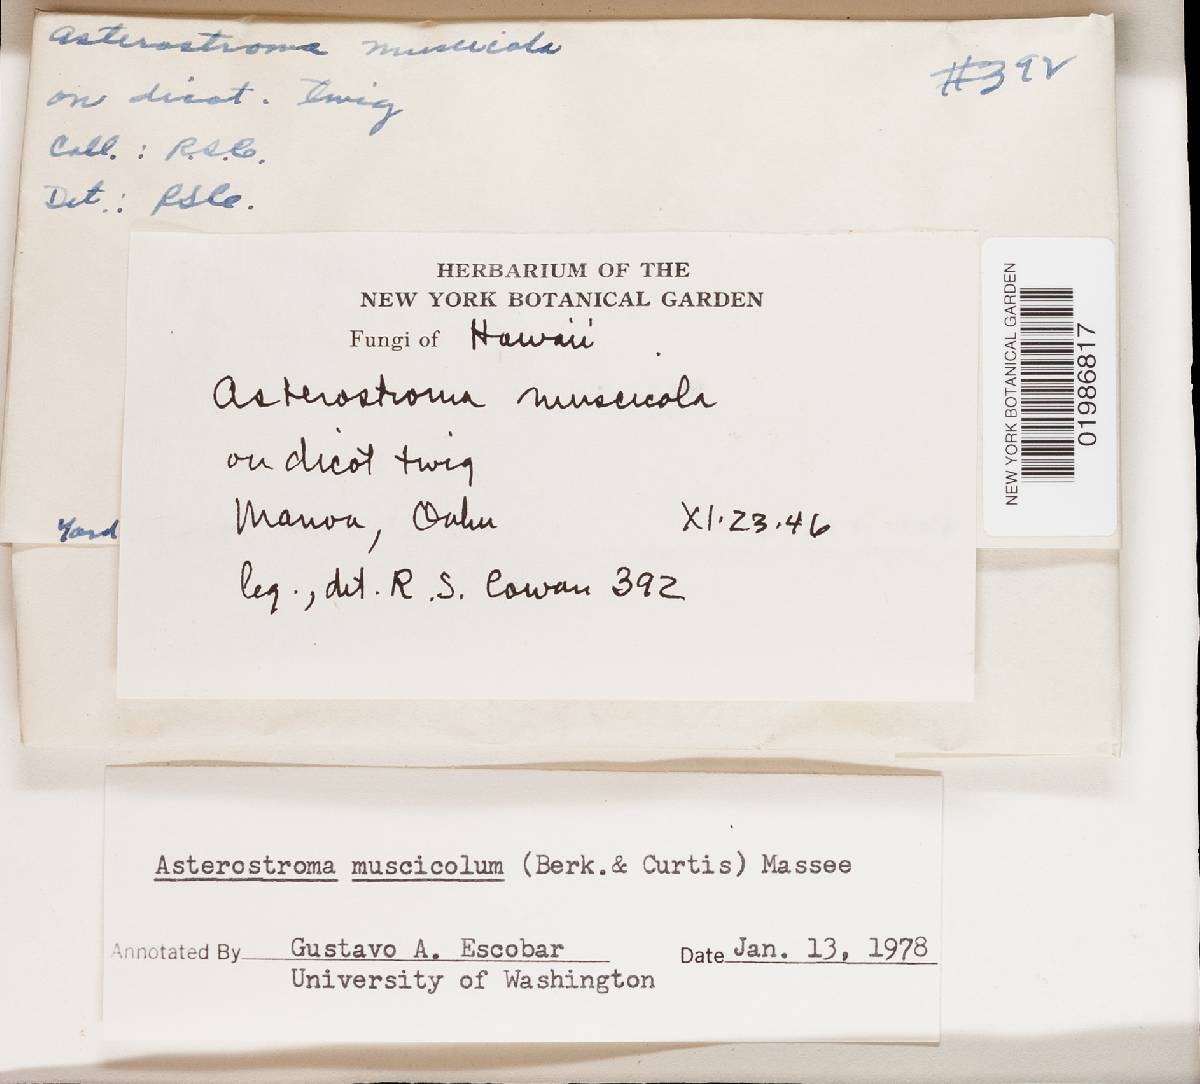 Asterostroma muscicola
#392
on dicot. twig
Coll. : R.S.C.
Det. : RSCo.
HERBARIUM OF THE
NEW YORK BOTANICAL GARDEN
Fungi of Hawaii
Asterostroma muscicola
on dicot twig
Manoa, Oahu XI.23.46
leg., det. R.S. Cowan 392
Yard
NEW YORK BOTANICAL GARDEN
01986817
Asterostroma muscicolum (Berk.& Curtis) Massee
Annotated By Gustavo A. Escobar Date Jan. 13, 1978
University of Washington